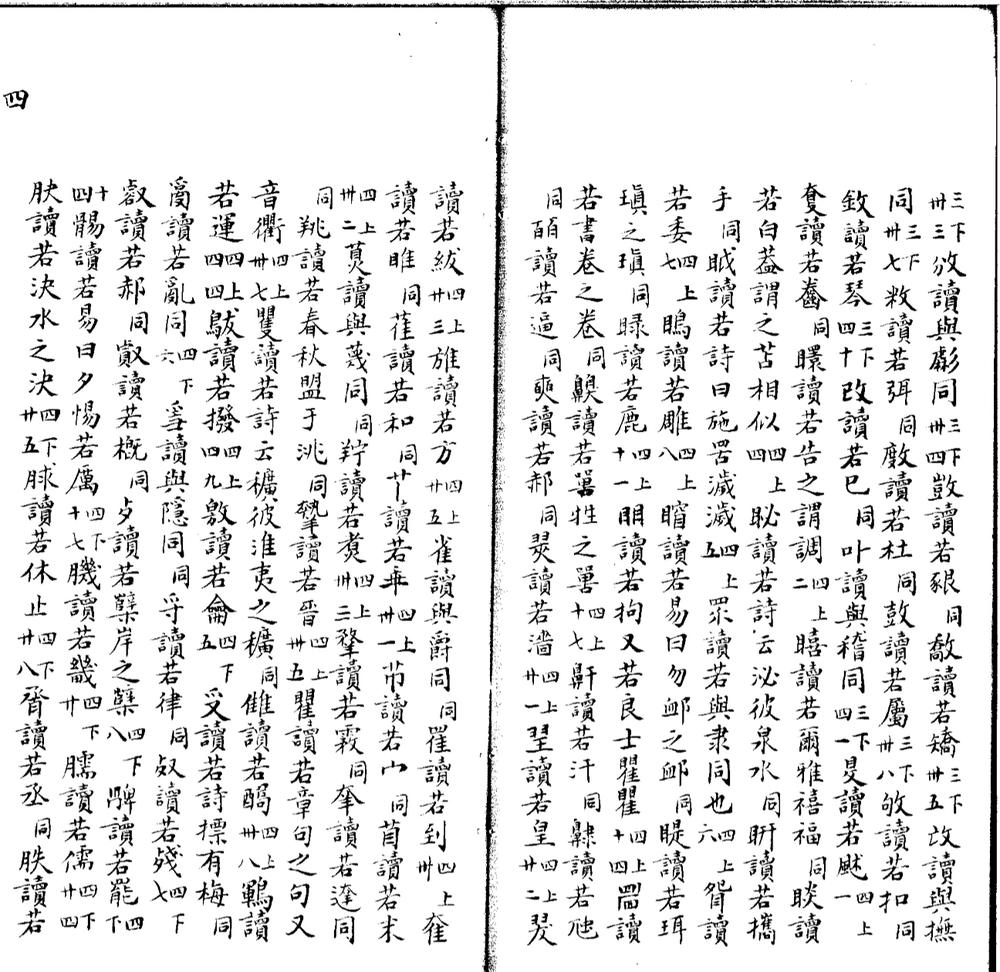 三下卅三攽讀與虨同三下卅四敳讀若豤同敿讀若矯三下卅五讀與撫
同三下卅七敉讀若弭同讀若杜同讀若屬三下卅八敂讀若扣同
㪁讀若琴三下四十攺讀若巳同卟讀與稽同三下四一讀若䫻四上一
敻讀若齤同讀若告之謂調四上二瞦讀若爾雅禧福同睒讀
若白蓋謂之苫相似四上四䀣讀若詩云泌彼泉水同讀若攜
手同眓讀若詩曰施罟濊濊四上五眔讀若與隶同也四上六眢讀
若委四上七瞗讀若雕四上八讀若易曰勿卹之卹同睼讀若珥
瑱之瑱同睩讀若鹿四上十一䀠讀若拘又若良士瞿瞿四上十四讀
若書卷之卷同讀若罵牲之罵四上十七鼾讀若汗同讀若虺
同皕讀若逼同奭讀若郝同翜讀若濇四上廿一讀若皇四上廿二翇
讀若紱四上廿三讀若方四上廿五雀讀與爵同同讀若到四上卅奞
讀若睢同雈讀若和同讀若乖四上卅一讀若宀同苜讀若末
四上卅二讀與蔑同同羜讀若煮四上卅三讀若霧同羍讀若達同
同讀若春秋盟于洮同讀若晉四上卅五瞿讀若章句之句又
音衢四上卅七矍讀若詩云穬彼淮夷之穬同雔讀若醻四上卅八鶤讀
若運四上四四讀若撥四上四九敫讀若龠四下五𠬪讀若詩摽有梅同
𤔔讀若亂同四下六讀與隱同同寽讀若律同讀若殘四下七
讀若郝同讀若概同歺讀若櫱岸之櫱四下八讀若罷四下
十四讀若易曰夕惕若厲四下十七讀若畿四下廿臑讀若儒四下廿四
讀若決水之決四下廿五脙讀若休止四下廿八脀讀若丞同胅讀若
四